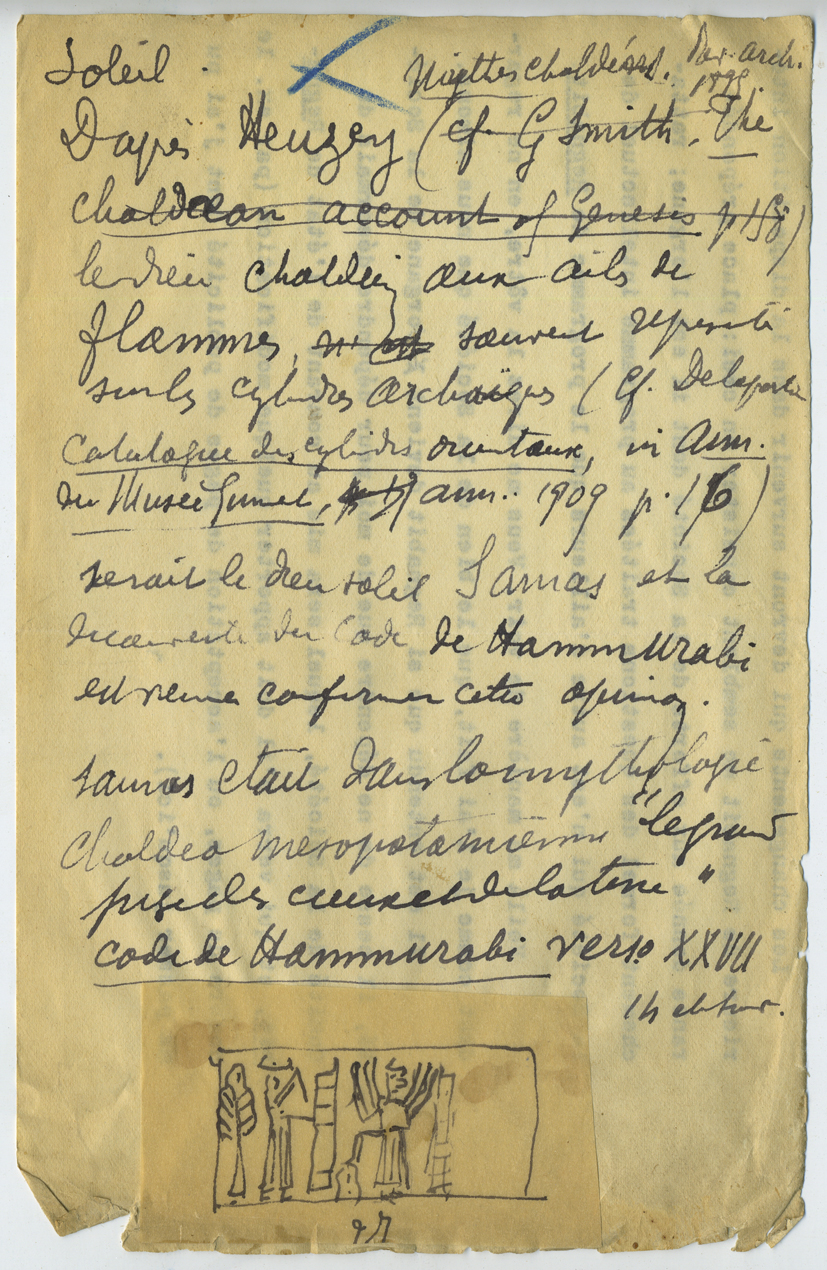 Soleil.
Mythes chaldéens. Rev. arch.
1895.
D'après Heuzey (cf. G Smith, The
chaldean account of Genesis p 158)
le dieu chaldéen aux ails de
flammes, souvent représenté
sur les cylindres archaïques (Cf. Delaporte
Catalogue des cylindres orientaux, in Ann.
du Musée Guimet, ann.. 1909 p. 116)
serait le dieu soleil Samas et la
découverte du Code de Hammurabi
est venu confirmer cette opinion.
Samas était dans la mythologie
chaldéo mésopotamienne "le grand
juge des cieux et de la terre"
code de Hammurabi verso XXVII
14 et suiv.